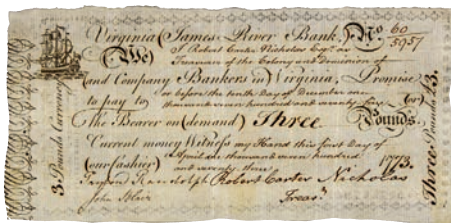 Virginia (James River Bank.) No. 60
5957
I Robert Carter Nicholas Esqr. or
(We) Treasurer of the Colony and dominion of
(and Company Bankers in) Virginia, Promise
or before the tenth Day of December one
to pay to) thousand seven hundred and seventy five (or)
The Bearer on (demand) Three Pounds.
Current money Witness my Hand this first Day of
(our Cashier) April one thousand seven hundred
and seventy three 1773.
Randolph Robert Carter Nicholas
John Blair Treasr.
3 Pounds Currency
Three Pounds £3.